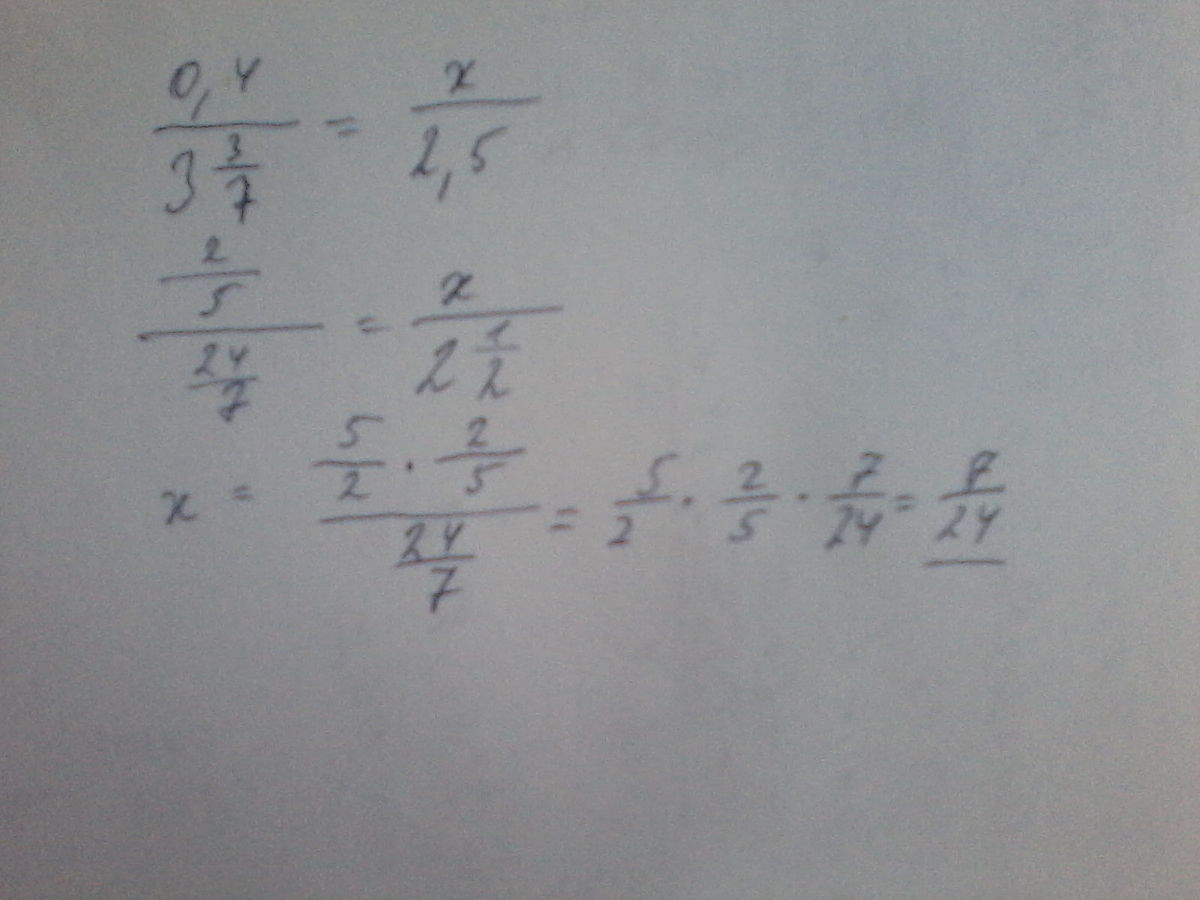 0,4 / 3 3/7 = x / 2,5
2/5 / 24/7 = x / 2 1/2
x = 5/2 · 2/5 / 24/7 = 5/2 · 2/5 · 7/24 = 7/24